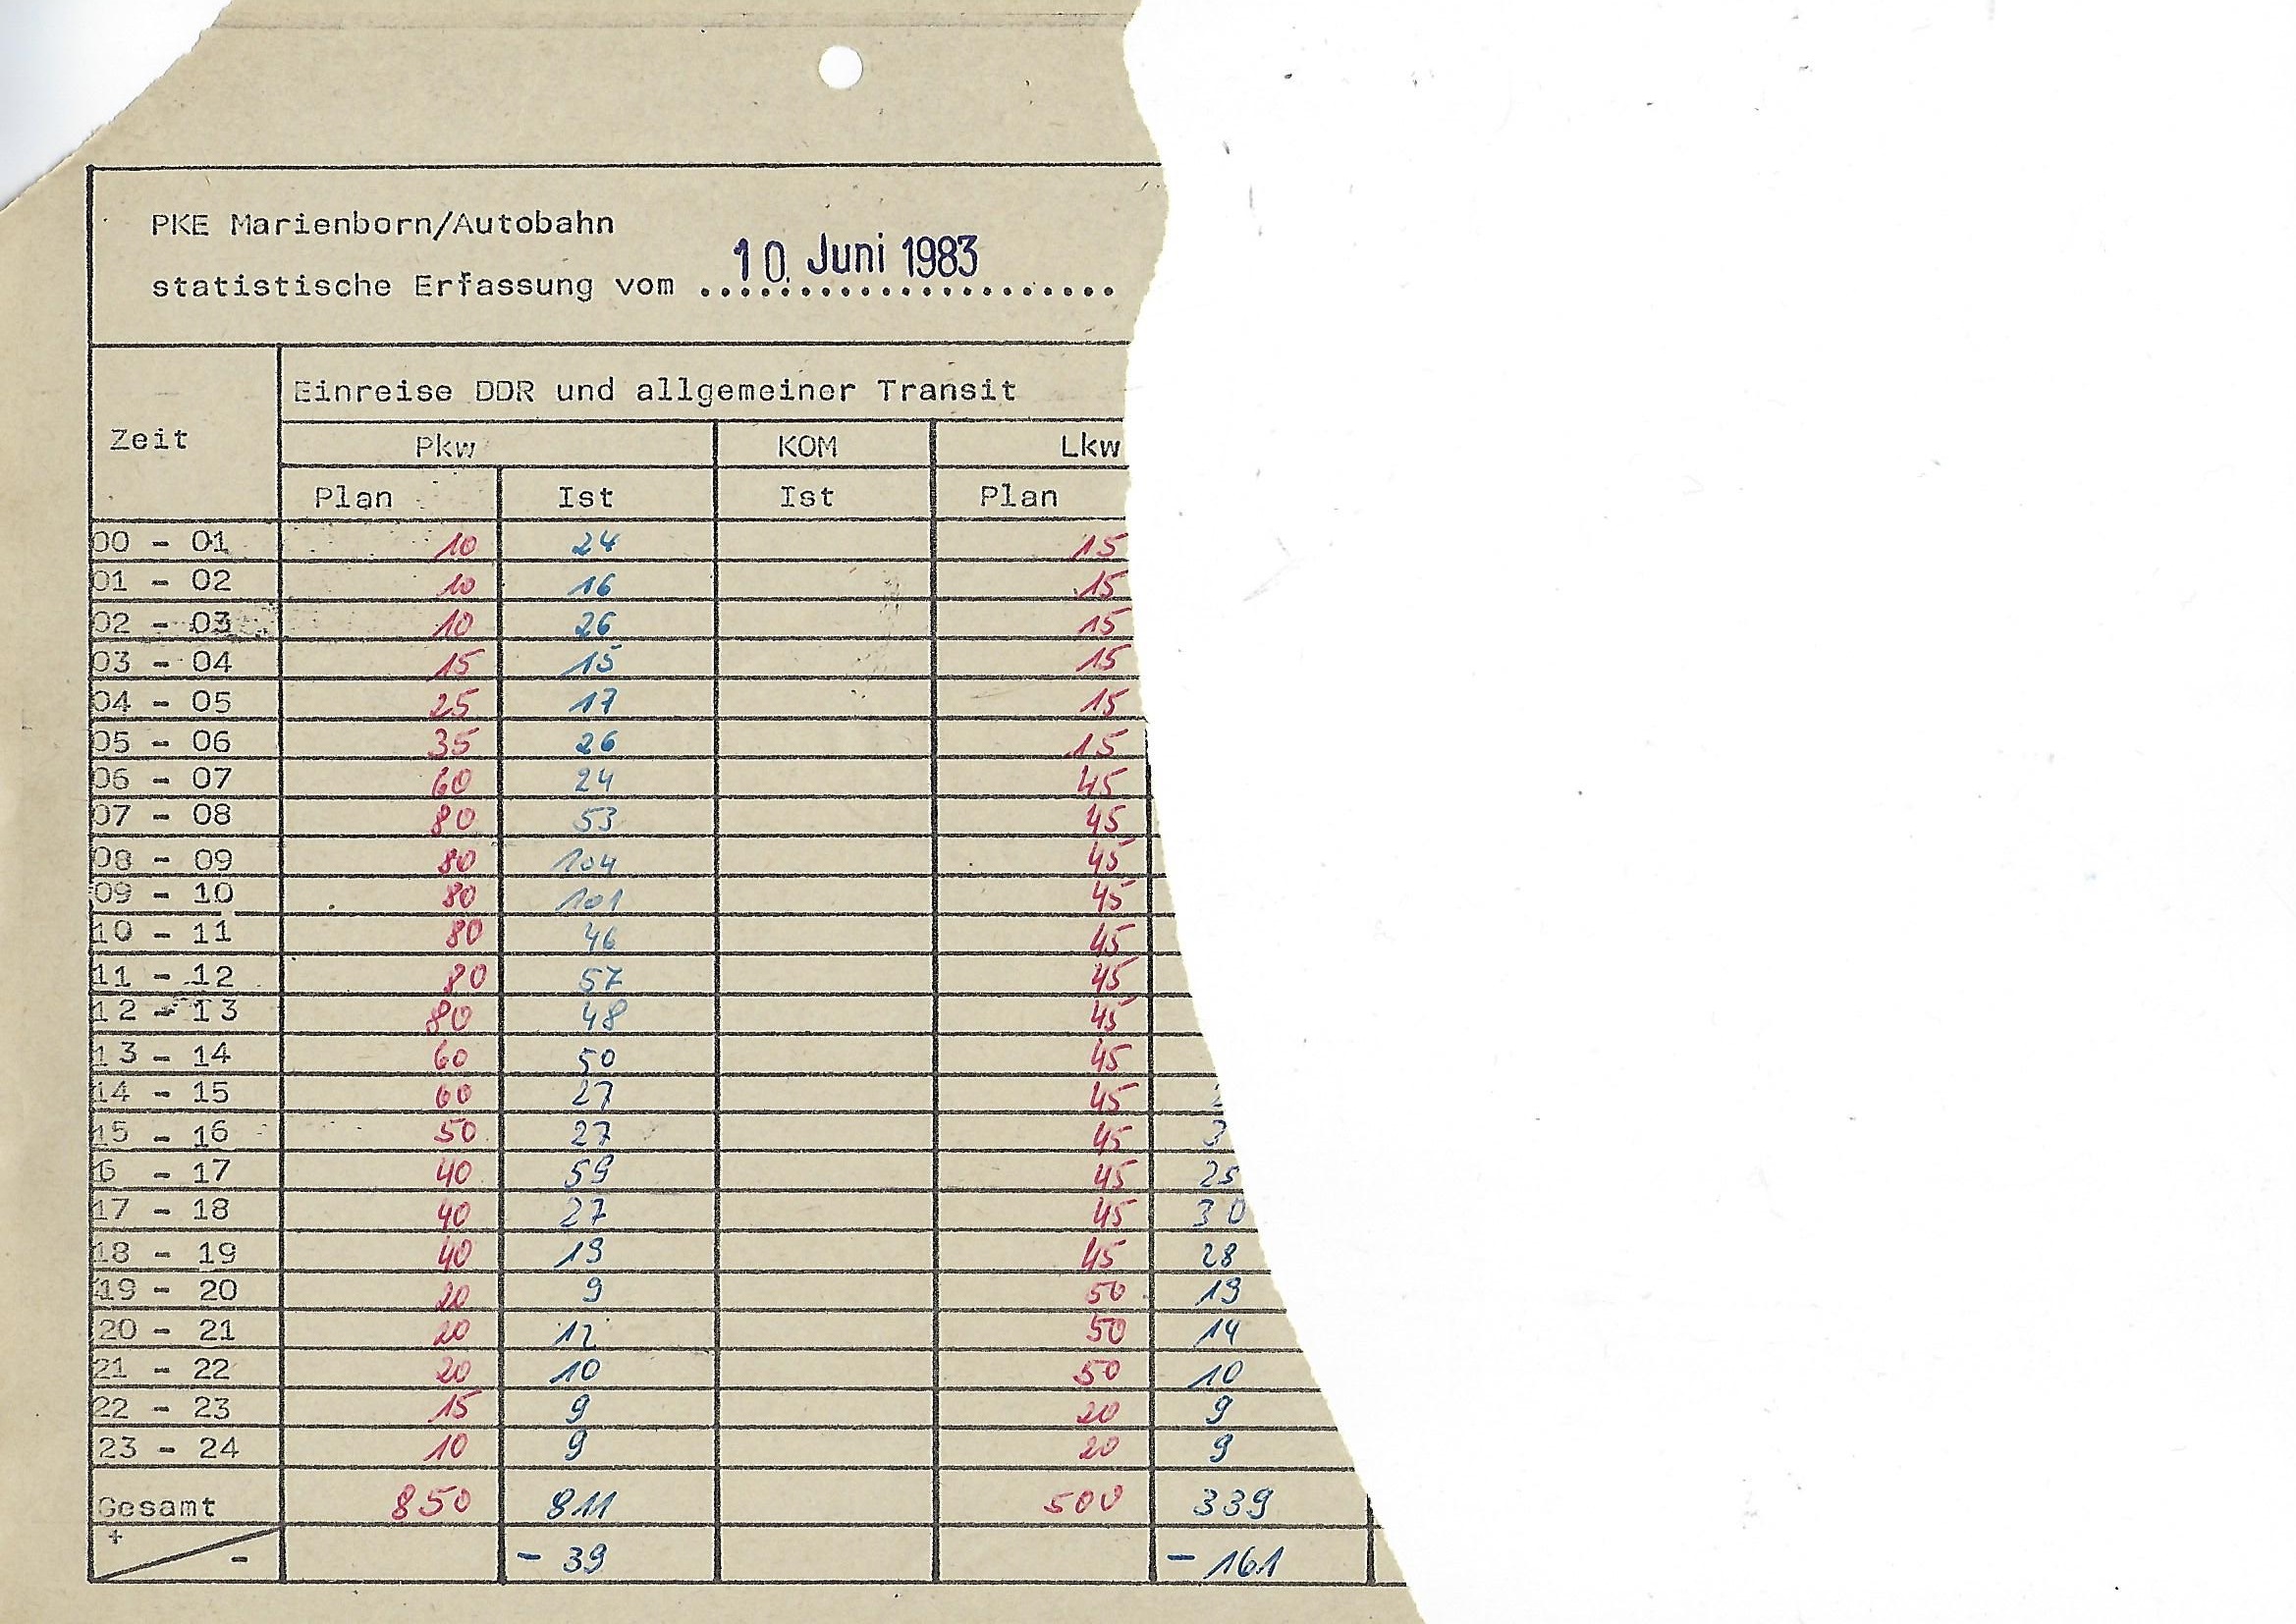 PKE Marienborn/Autobahn
statistische Erfassung vom 10. Juni 1983
Zeit
Einreise DDR und allgemeiner Transit
Pkw KOM Lkw
Plan Ist Ist Plan
00 - 01 10 24 15
01 - 02 10 16 15
02 - 03 10 26 15
03 - 04 15 15 15
04 - 05 25 17 15
05 - 06 35 26 15
06 - 07 60 24 45
07 - 08 80 53 45
08 - 09 80 104 45
09 - 10 80 101 45
10 - 11 80 46 45
11 - 12 80 57 45
12 - 13 80 48 45
13 - 14 60 50 45
14 - 15 60 27 45
15 - 16 50 27 45 3
6 - 17 40 59 45 25
17 - 18 40 27 45 30
18 - 19 40 19 45 28
19 - 20 20 9 50 19
20 - 21 20 12 50 14
21 - 22 20 10 50 10
22 - 23 15 9 20 9
23 - 24 10 9 20 9
Gesamt 850 811 500 339
+ - - 39 - 161